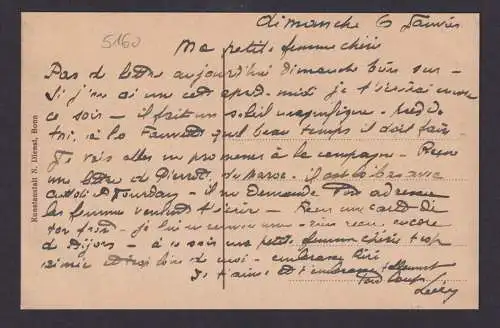 5160
dimanche 6 Janvier
Ma petite femme chérie
Pas de lettre aujourd'hui dimanche bien sur -
Si j'en ai une cet après-midi je t'écrirai encore
ce soir - il fait un soleil magnifique - près de
toi, à la Fauvette quel beau temps il doit faire
Je vais aller me promener à la campagne - Reçu
une lettre de Pierrot, du Maroc. il est là bas avec
Jourdan - il me demande ton adresse
les femmes veulent t'écrire - Reçu une carte de
ton frère - je lui - rien reçu encore
de Dijon - à ce soir une petite femme chérie trop
aimée et trop loin de moi - embrasse
Je t'aime et t'embrasse tellement
Ton loup
Kunstanstalt N. Dienst, Bonn